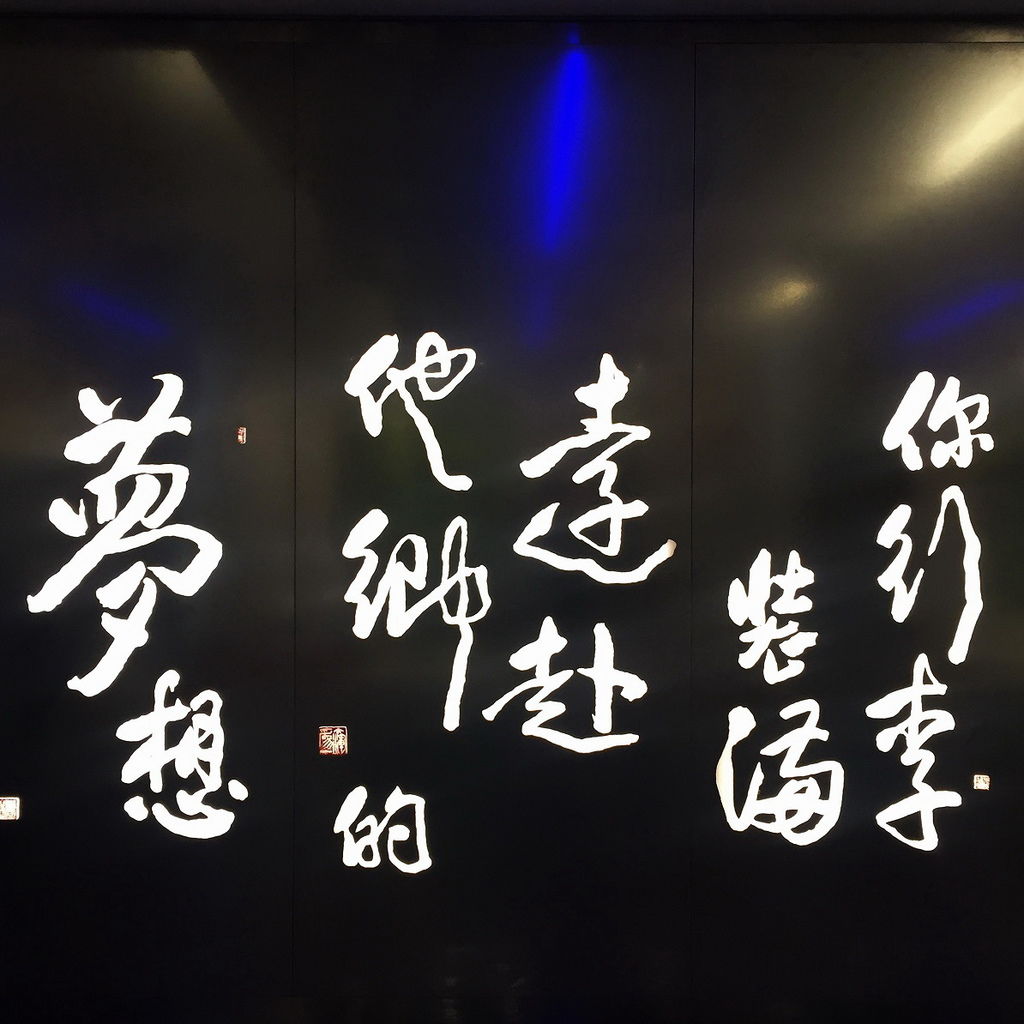 你行李
裝滿
遠赴
他鄉的
夢想